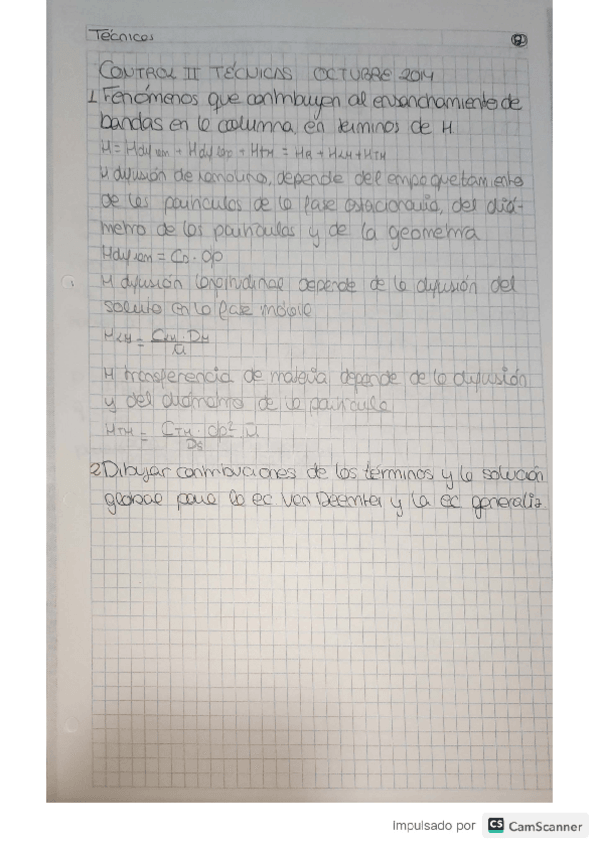 Técnicas
CONTROL II TÉCNICAS OCTUBRE 2014
1. Fenómenos que contribuyen al ensanchamiento de
bandas en la columna, en términos de H
H difusión de remolino, depende del empaquetamiento
de las partículas de la fase estacionaria, del diá-
metro de las partículas y de la geometría
H difusión longitudinal depende de la difusión del
soluto en la fase móvil
H transferencia de materia depende de la difusión
y del diámetro de la partícula
2. Dibujar contribuciones de los términos y la solución
global para la ec Van Deemter y la ec generaliz
Impulsado por CS CamScanner